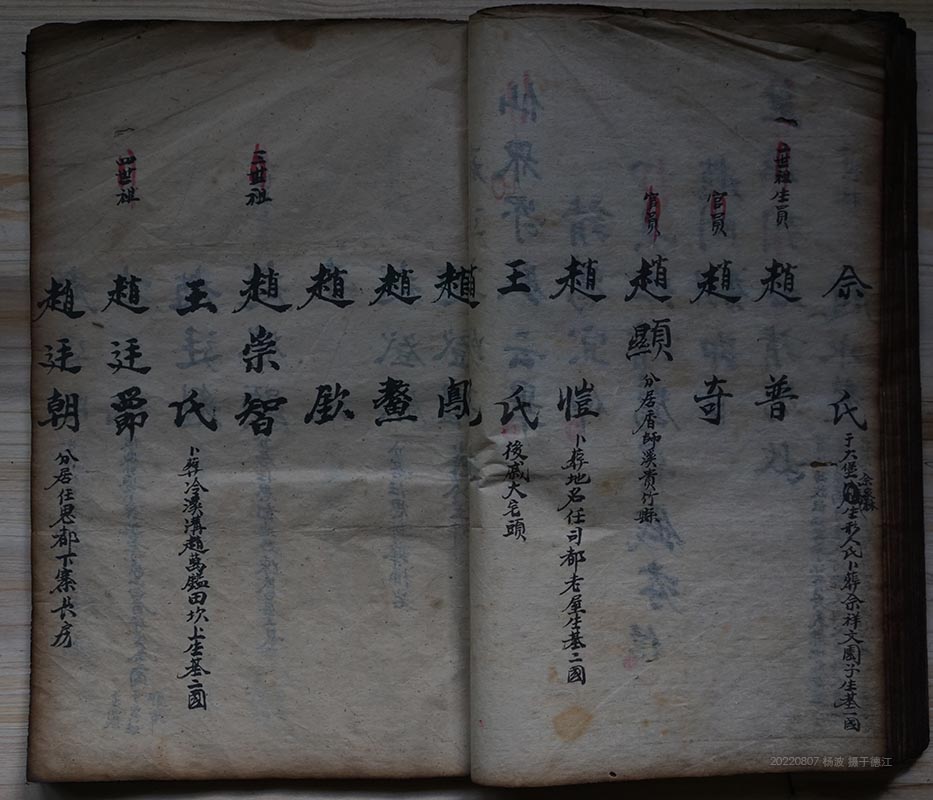 佘氏 于大堡生形人氏卜葬佘祥文園子生基一國
二世祖生員 趙清普
官員 趙奇
官員 趙顯 分居眉師溪貴竹縣
趙愷 卜葬地名任司都老屋生基二國
王氏 後戚大宅頭
趙鳳
趙鰲
趙欽
三世祖 趙崇智
王氏 卜葬冷溪溝趙萬鑑田坎上生基二國
四世祖 趙廷昂
趙廷朝 分居任思都下寨長房
20220807 杨波 摄于德江